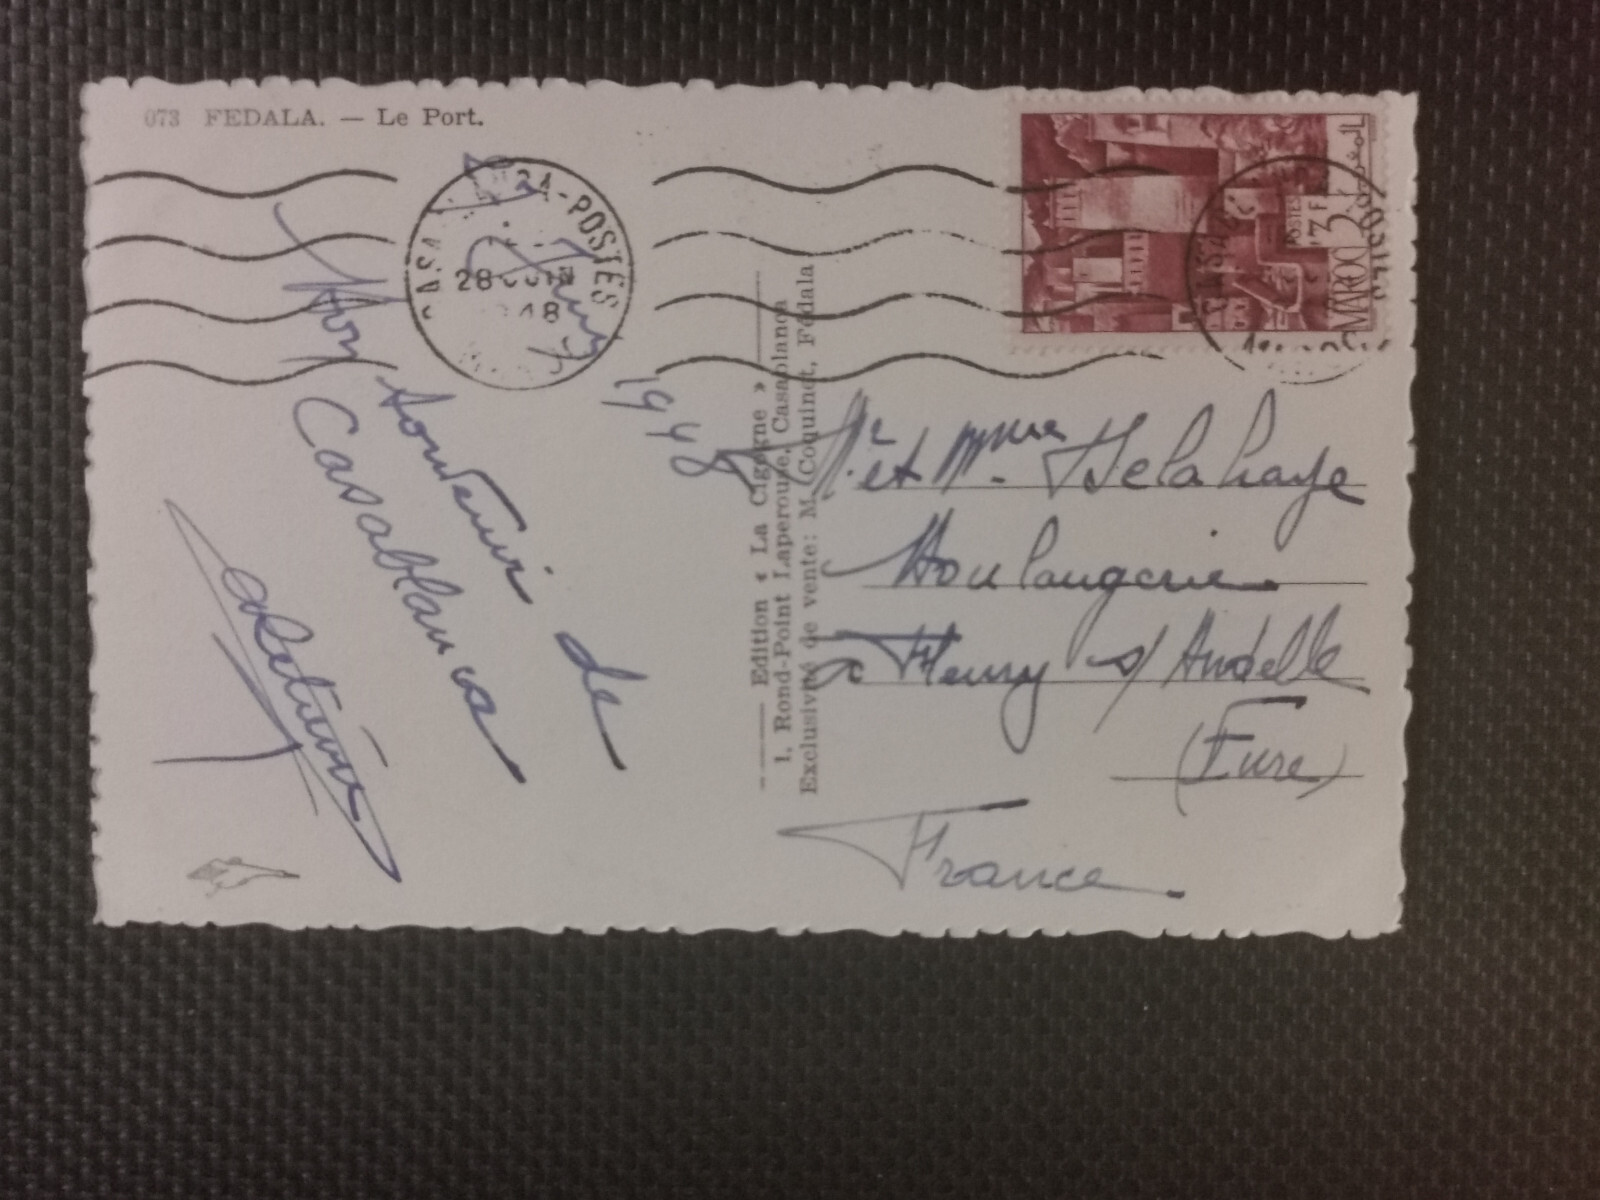 073 FEDALA. — Le Port.
CASABLANCA-POSTES
28
1948
MAROC 3F
POSTES
المغرب
1948
Bon souvenir de
Casablanca
Edition « La Cigogne »
1, Rond-Point Laperouse, Casablanca
Exclusivité de vente: M. Coquinet, Fédala
Mr et Mme Delahaye
Boulangerie
à Fleury s/ Andelle
(Eure)
France